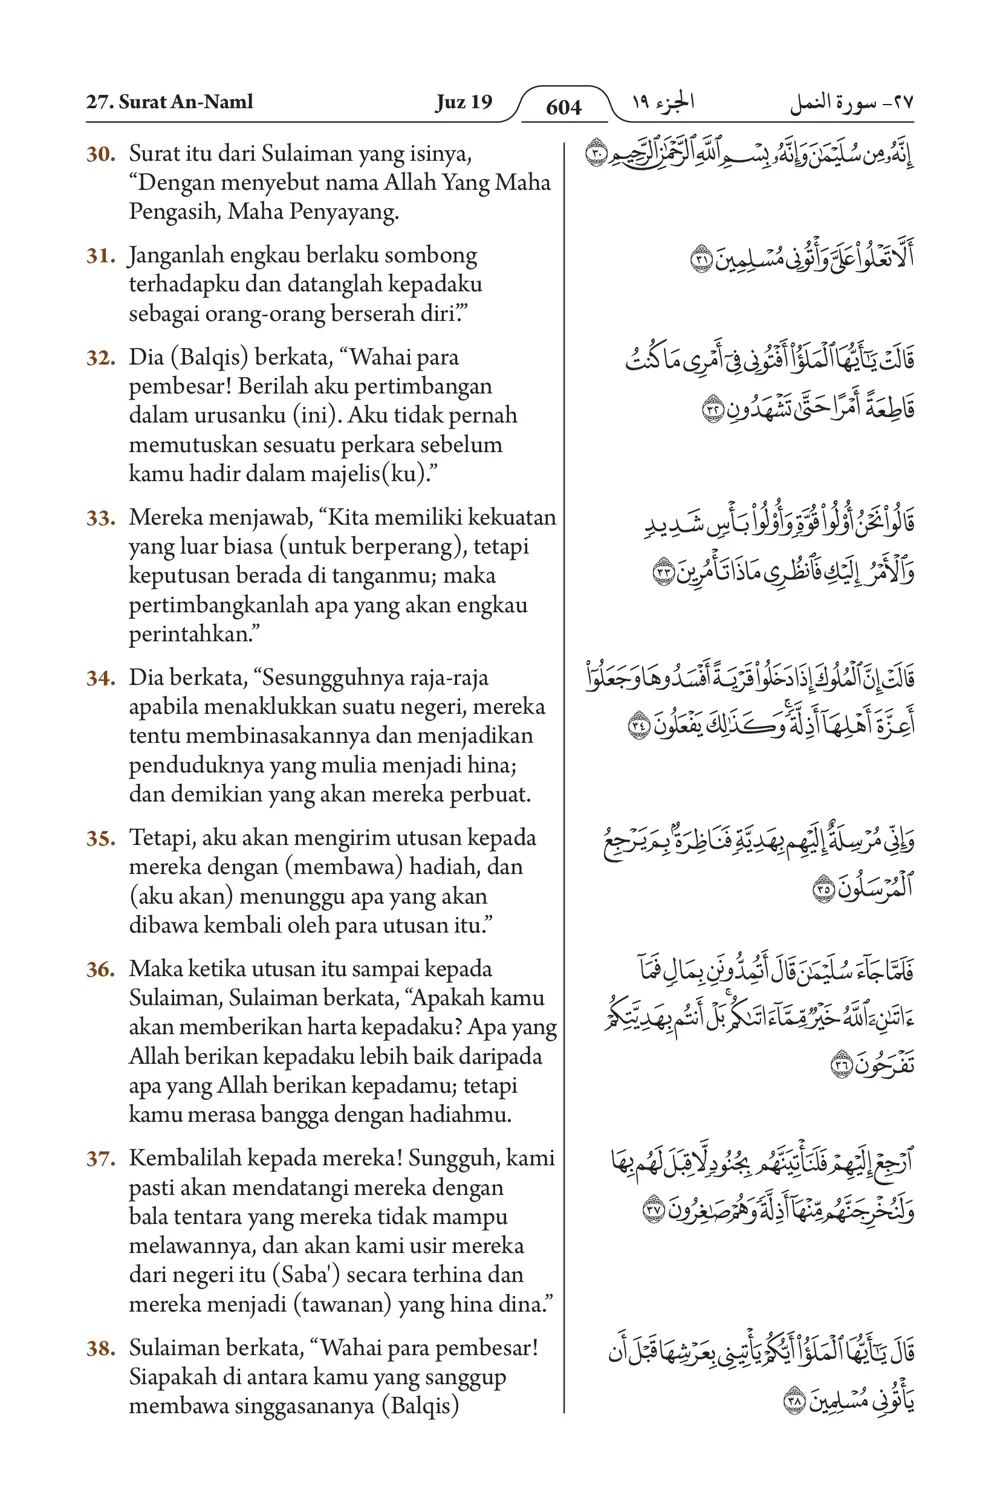 27. Surat An-Naml Juz 19 604 الجزء ١٩ ٢٧- سورة النمل
30. Surat itu dari Sulaiman yang isinya,
“Dengan menyebut nama Allah Yang Maha
Pengasih, Maha Penyayang.
31. Janganlah engkau berlaku sombong
terhadapku dan datanglah kepadaku
sebagai orang-orang berserah diri.’”
32. Dia (Balqis) berkata, “Wahai para
pembesar! Berilah aku pertimbangan
dalam urusanku (ini). Aku tidak pernah
memutuskan sesuatu perkara sebelum
kamu hadir dalam majelis(ku).”
33. Mereka menjawab, “Kita memiliki kekuatan
yang luar biasa (untuk berperang), tetapi
keputusan berada di tanganmu; maka
pertimbangkanlah apa yang akan engkau
perintahkan.”
34. Dia berkata, “Sesungguhnya raja-raja
apabila menaklukkan suatu negeri, mereka
tentu membinasakannya dan menjadikan
penduduknya yang mulia menjadi hina;
dan demikian yang akan mereka perbuat.
35. Tetapi, aku akan mengirim utusan kepada
mereka dengan (membawa) hadiah, dan
(aku akan) menunggu apa yang akan
dibawa kembali oleh para utusan itu.”
36. Maka ketika utusan itu sampai kepada
Sulaiman, Sulaiman berkata, “Apakah kamu
akan memberikan harta kepadaku? Apa yang
Allah berikan kepadaku lebih baik daripada
apa yang Allah berikan kepadamu; tetapi
kamu merasa bangga dengan hadiahmu.
37. Kembalilah kepada mereka! Sungguh, kami
pasti akan mendatangi mereka dengan
bala tentara yang mereka tidak mampu
melawannya, dan akan kami usir mereka
dari negeri itu (Saba') secara terhina dan
mereka menjadi (tawanan) yang hina dina.”
38. Sulaiman berkata, “Wahai para pembesar!
Siapakah di antara kamu yang sanggup
membawa singgasananya (Balqis)
إِنَّهُۥ مِن سُلَيْمَٰنَ وَإِنَّهُۥ بِسْمِ ٱللَّهِ ٱلرَّحْمَٰنِ ٱلرَّحِيمِ ٣٠
أَلَّا تَعْلُوا۟ عَلَىَّ وَأْتُونِى مُسْلِمِينَ ٣١
قَالَتْ يَٰٓأَيُّهَا ٱلْمَلَؤُا۟ أَفْتُونِى فِىٓ أَمْرِى مَا كُنتُ
قَاطِعَةً أَمْرًا حَتَّىٰ تَشْهَدُونِ ٣٢
قَالُوا۟ نَحْنُ أُو۟لُوا۟ قُوَّةٍ وَأُو۟لُوا۟ بَأْسٍ شَدِيدٍ
وَٱلْأَمْرُ إِلَيْكِ فَٱنظُرِى مَاذَا تَأْمُرِينَ ٣٣
قَالَتْ إِنَّ ٱلْمُلُوكَ إِذَا دَخَلُوا۟ قَرْيَةً أَفْسَدُوهَا وَجَعَلُوٓا۟
أَعِزَّةَ أَهْلِهَآ أَذِلَّةً ۖ وَكَذَٰلِكَ يَفْعَلُونَ ٣٤
وَإِنِّى مُرْسِلَةٌ إِلَيْهِم بِهَدِيَّةٍ فَنَاظِرَةٌۢ بِمَ يَرْجِعُ
ٱلْمُرْسَلُونَ ٣٥
فَلَمَّا جَآءَ سُلَيْمَٰنَ قَالَ أَتُمِدُّونَنِ بِمَالٍ فَمَآ
ءَاتَىٰنِۦَ ٱللَّهُ خَيْرٌ مِّمَّآ ءَاتَىٰكُم ۚ بَلْ أَنتُم بِهَدِيَّتِكُمْ
تَفْرَحُونَ ٣٦
ٱرْجِعْ إِلَيْهِمْ فَلَنَأْتِيَنَّهُم بِجُنُودٍ لَّا قِبَلَ لَهُم بِهَا
وَلَنُخْرِجَنَّهُم مِّنْهَآ أَذِلَّةً وَهُمْ صَٰغِرُونَ ٣٧
قَالَ يَٰٓأَيُّهَا ٱلْمَلَؤُا۟ أَيُّكُمْ يَأْتِينِى بِعَرْشِهَا قَبْلَ أَن
يَأْتُونِى مُسْلِمِينَ ٣٨